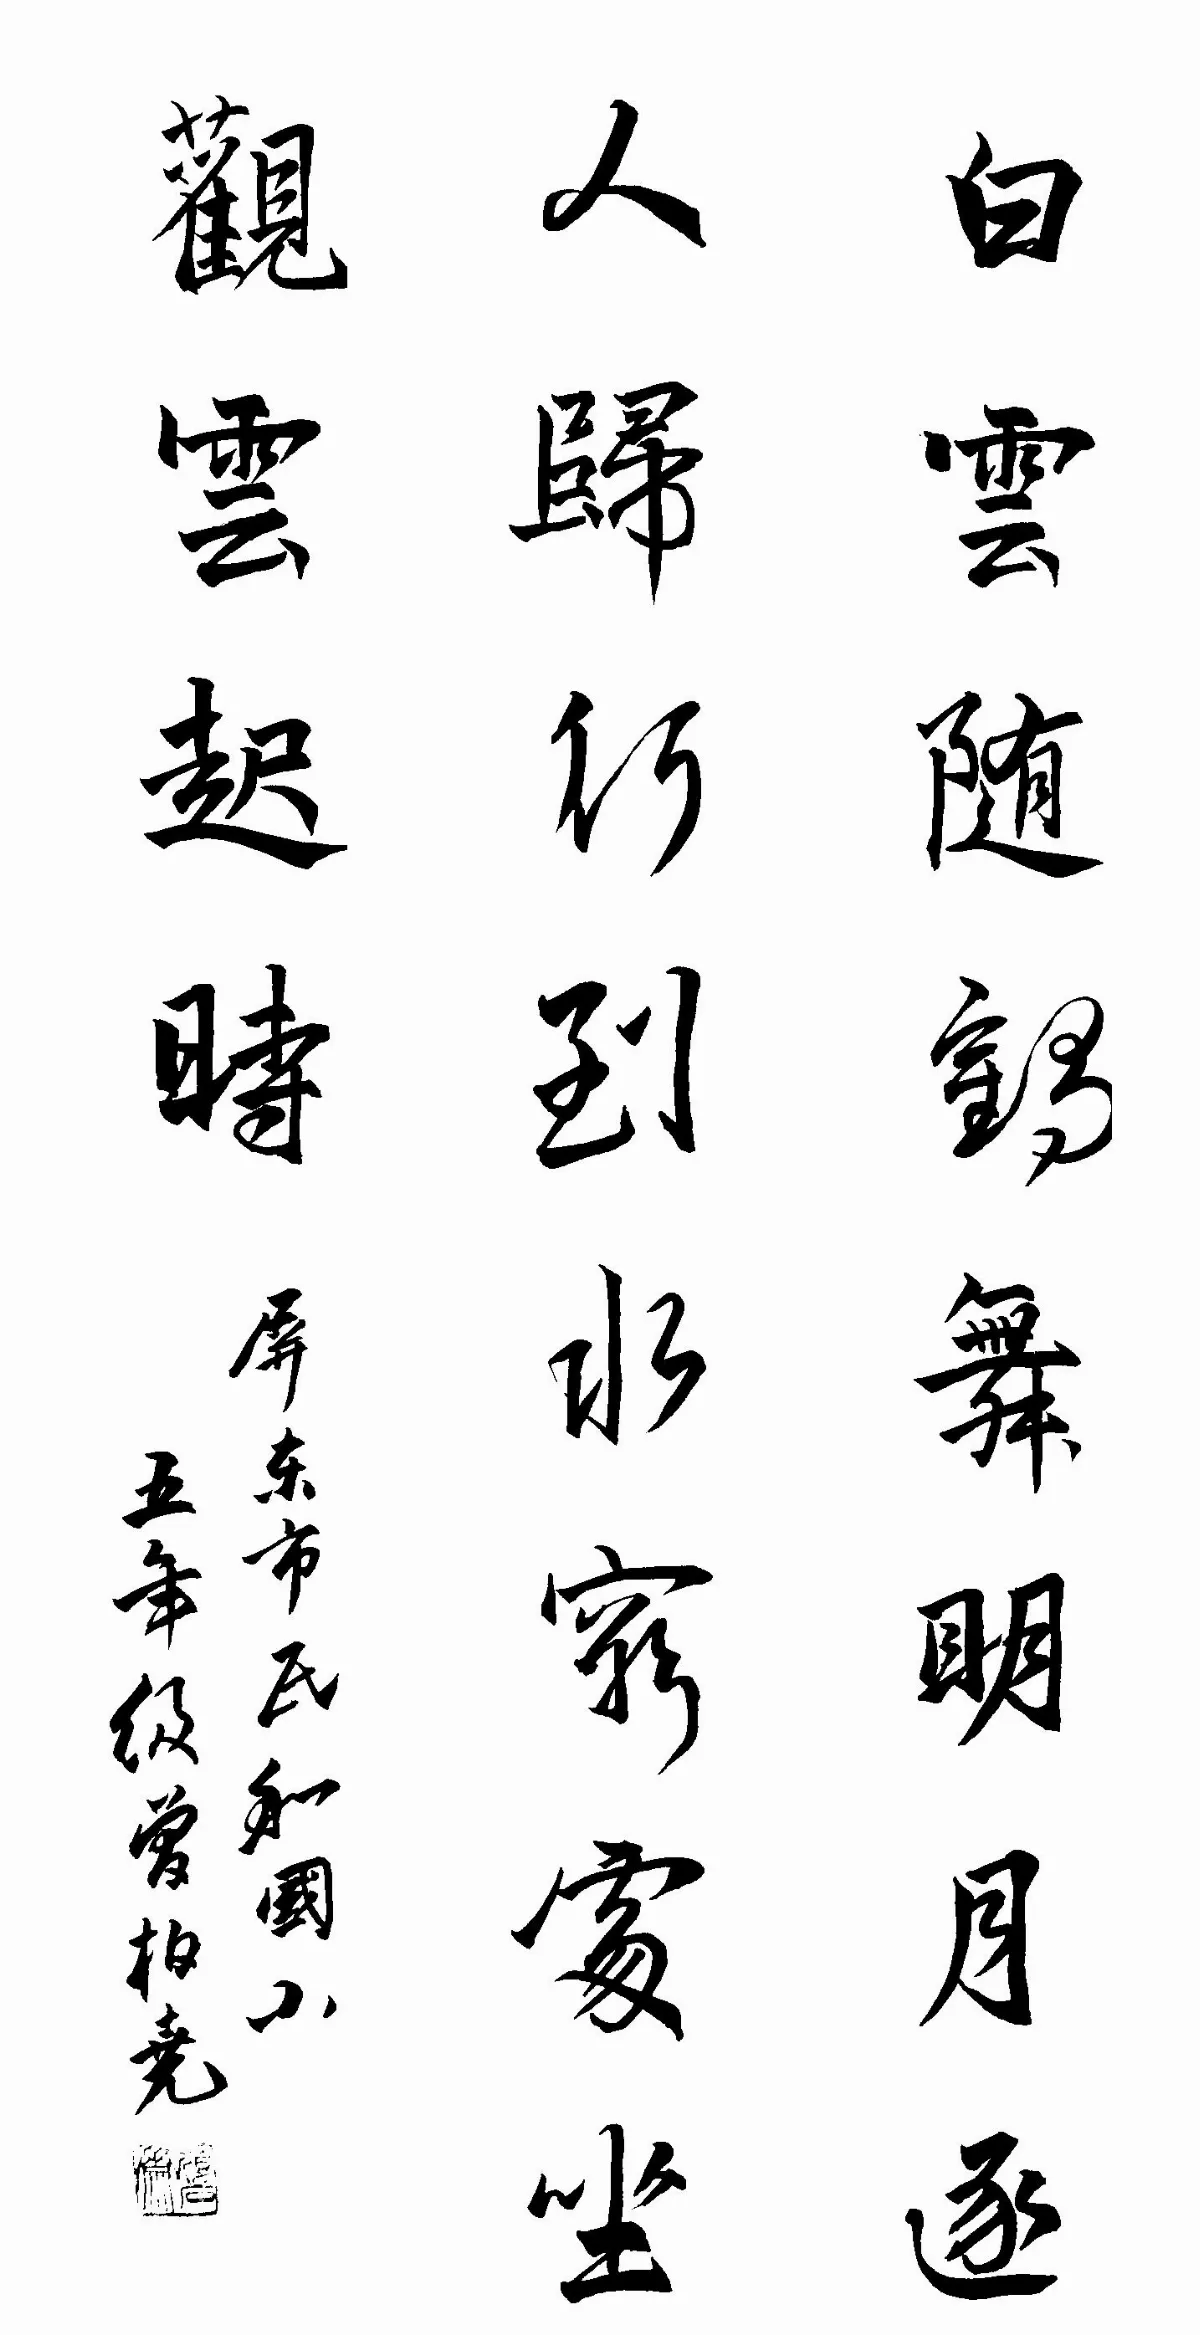 白雲随鶴舞明月逐
人歸行到水窮處坐
觀雲起時
屏東市民和國小
五年級曾柏堯